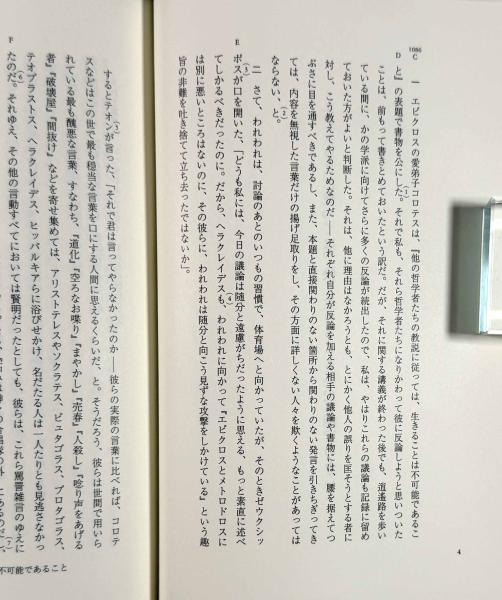 1086
C
一 エピクロスの愛弟子コロテスは、『他の哲学者たちの教説に従っては、生きることは不可能であるこ
D
と』の表題で書物を公にした。それで私も、それら哲学者たちになりかわって彼に反論しようと思いついた
ことは、前もって書きとめておいたという訳だ。だが、それに関する講義が終わった後でも、逍遙路を歩い
ている間に、かの学派に向けてさらに多くの反論が続出したので、私は、やはりこれらの議論も記録に留め
ておいた方がよいと判断した。それは、他に理由はなかろうとも、とにかく他人の誤りを匡そうとする者に
対し、こう教えてやるためなのだ――それぞれ自分が反論を加える相手の議論や書物には、腰を据えてつ
ぶさに目を通すべきであるし、また、本題と直接関わりのない箇所から関わりのない発言を引きちぎってき
ては、内容を無視した言葉だけの揚げ足取りをし、その方面に詳しくない人々を欺くようなことがあっては
ならない、と。
(2)
二 さて、われわれは、討論のあとのいつもの習慣で、体育場へと向かっていたが、そのときゼウクシッ
E
ポスが口を開いた、「どうも私には、今日の議論は随分と遠慮がちだったように思える、もっと素直に述べ
(3)
てしかるべきだったのに。だから、ヘラクレイデスも、われわれに向かって『エピクロスとメトロドロスに
(4)
は別に悪いところはないのに、その彼らに、われわれは随分と向こう見ずな攻撃をしかけている』という趣
旨の非難を吐き捨てて立ち去ったではないか」。
4
するとテオンが言った、「それで君は言ってやらなかったのか――彼らの実際の言葉に比べれば、コロテ
スなどはこの世で最も穏当な言葉を口にする人間に思えるくらいだ、と。そうだろう、彼らは世間で用いら
れている最も醜悪な言葉、すなわち、『道化』『空ろなお喋り』『まやかし』『売春』『人殺し』『唸り声をあげる
者』『破壊屋』『間抜け』などを寄せ集めては、アリストテレスやソクラテス、ピュタゴラス、プロタゴラス、
テオプラストス、ヘラクレイデス、ヒッパルキアらに浴びせかけ、名だたる人は一人たりとも見逃さなかっ
F
たのだ。それゆえ、その他の言動すべてにおいては賢明だったとしても、彼らは、これら罵詈雑言のゆえに
(6)
(7)
不可能であること